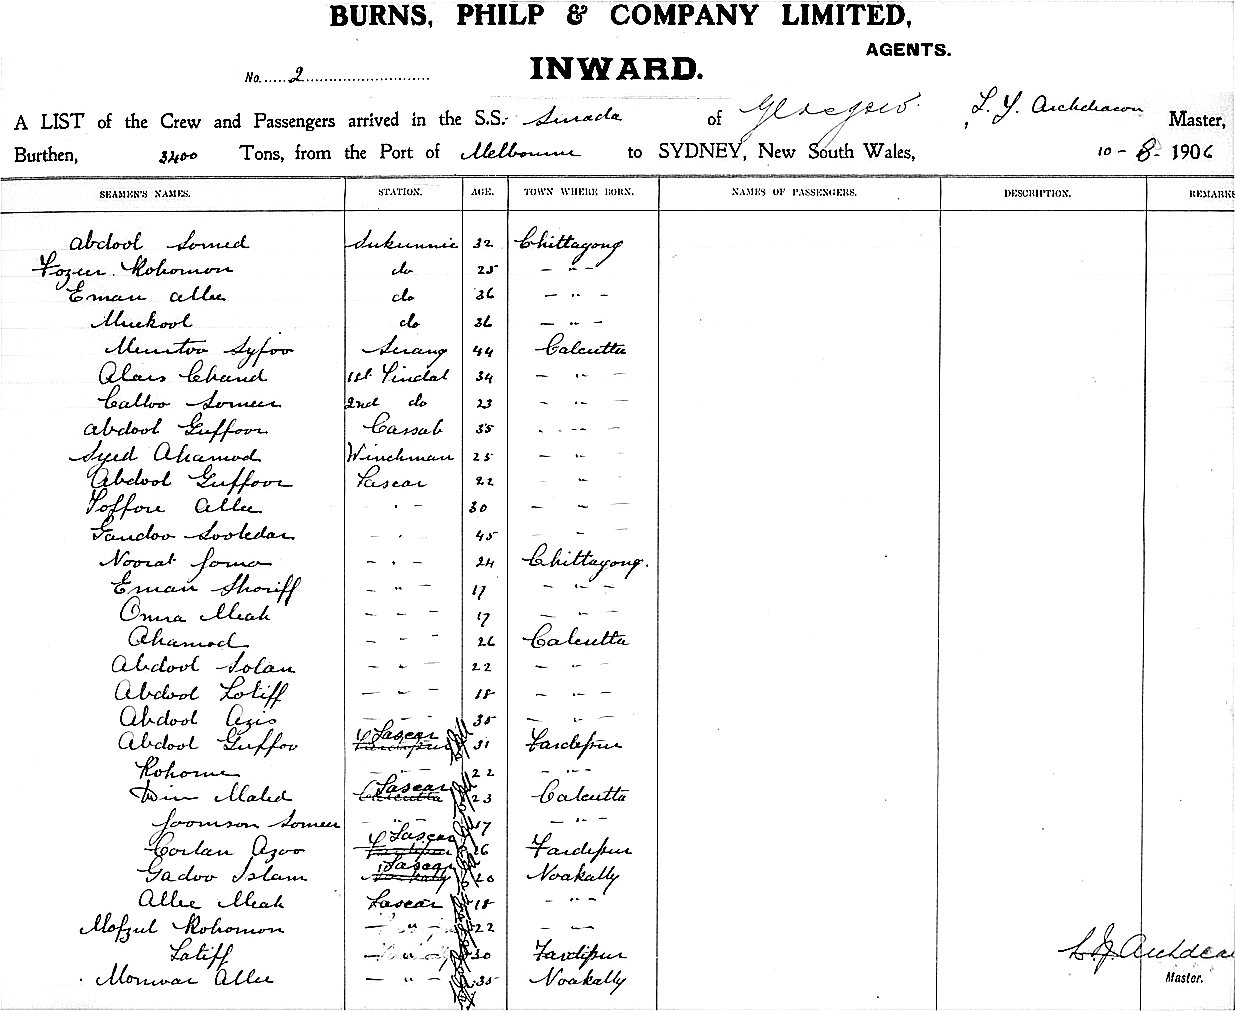 BURNS, PHILP & COMPANY LIMITED,
AGENTS.
No. 2
INWARD.
A LIST of the Crew and Passengers arrived in the S.S. Surada of Glasgow L. Y. Archdeacon Master,
Burthen, 3400 Tons, from the Port of Melbourne to SYDNEY, New South Wales, 10 - 8 - 1906
SEAMEN'S NAMES. STATION. AGE. TOWN WHERE BORN. NAMES OF PASSENGERS. DESCRIPTION. REMARKS
Abdool Somed Sukunnie 32 Chittagong
Fozur Rohomon do 25 - " -
Eman Allee do 36 - " -
Muckool do 36 - " -
Syfoo Serang 44 Calcutta
Chand 1st Tindal 34 - " -
Calloo Someer 2nd do 23 - " -
Abdool Guffoor Cassab 35 - " -
Syed Ahamod Winchman 25 - " -
Abdool Guffoor Lascar 22 - " -
Toffou Allee - " - 30 - " -
Gandoo - " - 45 - " -
Noorat - " - 24 Chittagong.
Eman Shoriff - " - 17 - " -
Meah - " - 17 - " -
Ahamod - " - 26 Calcutta
Abdool Solan - " - 22 - " -
Abdool Lotiff - " - 18 - " -
Abdool Azis - " - 35 - " -
Abdool Guffoo Lascar 31 Fardipur
Rohome - " - 22 - " -
Din Mahd Lascar 23 Calcutta
Joomson Someer - " - 17 - " -
Azoo Lascar 26 Fardipur
Gadoo Islam Lascar 20 Noakally
Allee Meah Lascar 18 - " -
Mofzul Rohomon - " - 22 - " -
Latiff - " - 30 Fardipur
Monwar Allee - " - 35 Noakally
L. Y. Archdea
Master.